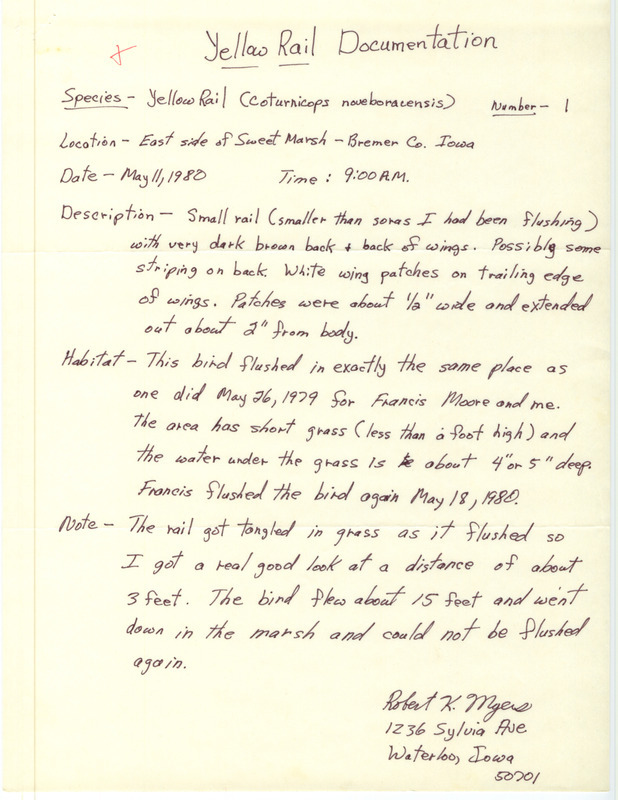 Yellow Rail Documentation
Species - Yellow Rail (Coturnicops noveboracensis) Number - 1
Location - East side of Sweet Marsh - Bremer Co. Iowa
Date - May 11, 1980 Time : 9:00 A.M.
Description - Small rail (smaller than soras I had been flushing)
with very dark brown back + back of wings. Possibly some
striping on back. White wing patches on trailing edge
of wings. Patches were about 1/2" wide and extended
out about 2" from body.
Habitat - This bird flushed in exactly the same place as
one did May 26, 1979 for Francis Moore and me.
The area has short grass (less than a foot high) and
the water under the grass is about 4" or 5" deep.
Francis flushed the bird again May 18, 1980.
Note - The rail got tangled in grass as it flushed so
I got a real good look at a distance of about
3 feet. The bird flew about 15 feet and went
down in the marsh and could not be flushed
again.
Robert K. Myers
1236 Sylvia Ave
Waterloo, Iowa
50701